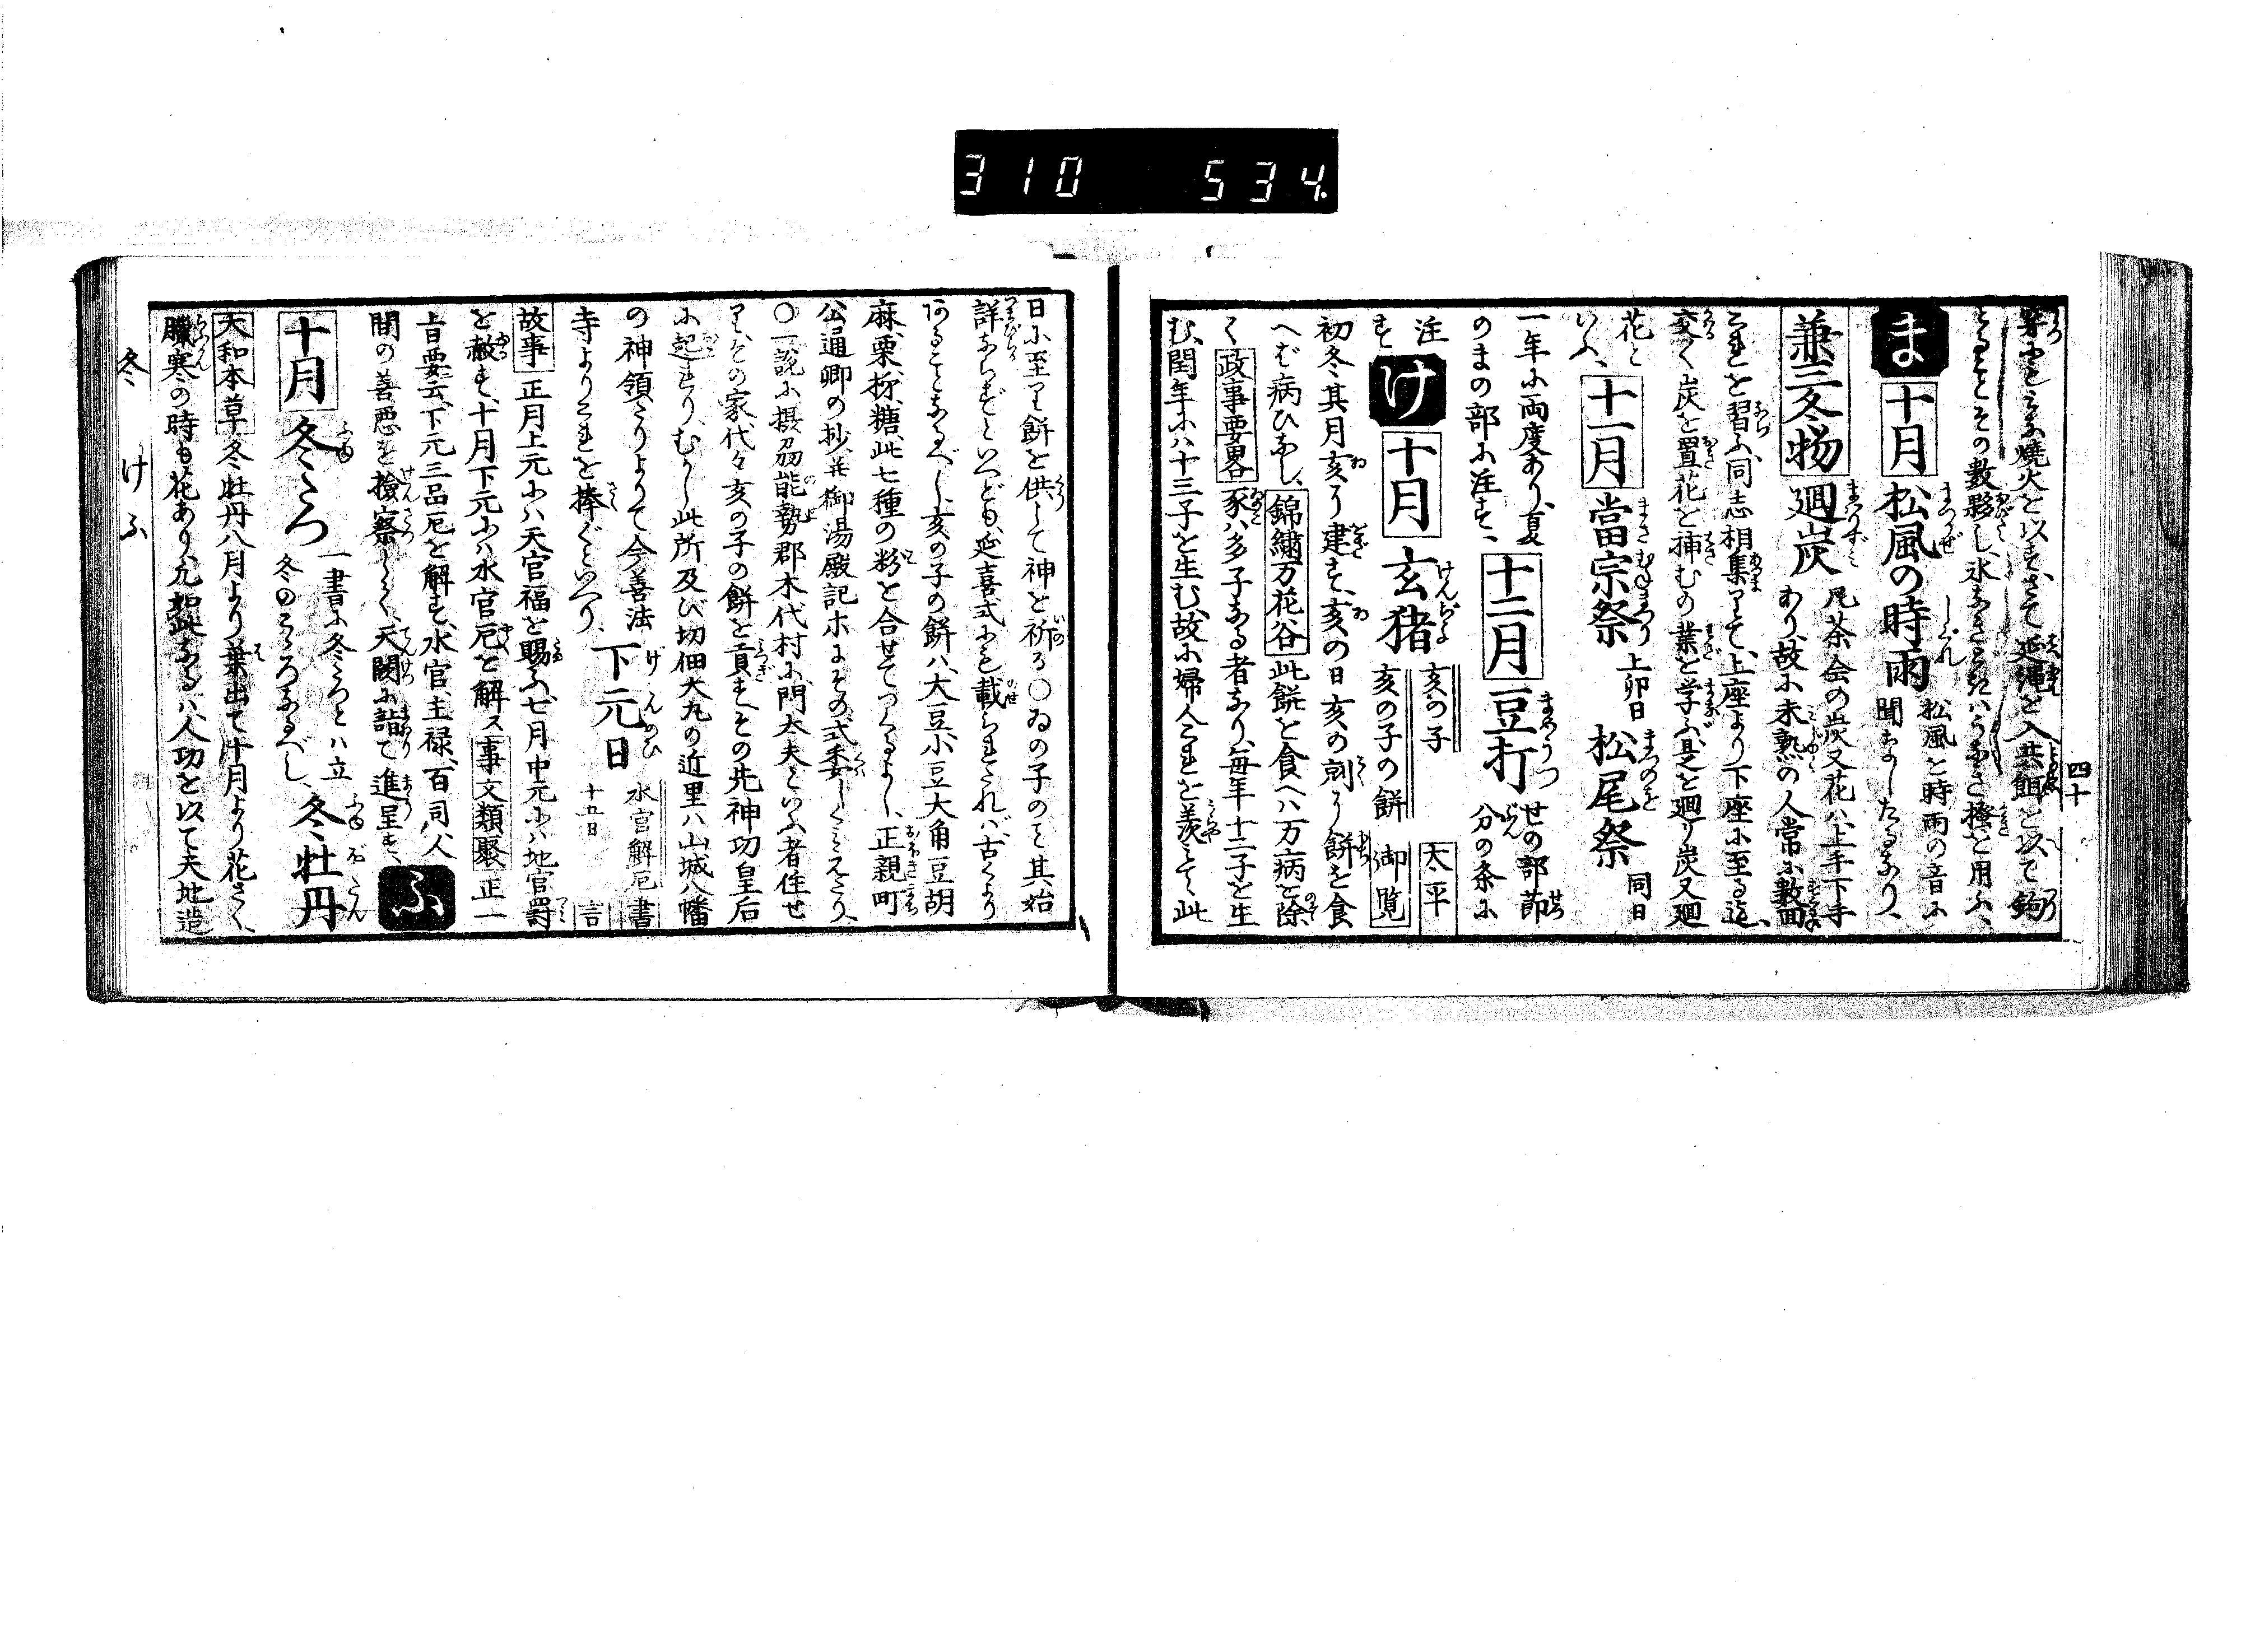 310 534
四十
穽やどみな焼火を以す、さて延縄を入共餌を以て鉤
とることその数夥し、氷なきときハうなさ掻を用ふ、
ま 十月 松風の時雨 松風を時雨の音に
聞なしたるなり、
兼三冬物 廻炭 凡茶会の炭又花ハ上手下手
あり、故に未熟の人常に数回
これを習ふ、同志相集りて、上座より下座に至る迄、
交く炭を置花を挿むの業を学ふ、是を廻り炭又廻
花と
いふ、
十一月 當宗祭 上卯日 松尾祭 同日
一年に両度あり、夏
のまの部に注す、
十二月 豆打 せの部節
分の条に
注
す
け 十月 玄猪 亥の子
亥の子の餅
太平
御覧
初冬其月亥に建す、亥の日亥の刻に餅を食
へば病ひなし、錦繍万花谷 此餅を食へハ万病を除
く 政事要畧 豕ハ多子なる者なり、毎年十二子を生
む、閏年にハ十三子を生む、故に婦人これを羨みて、此
日に至りて餅を供して神を祈る○ゐの子のこと其始
詳ならずといへども、延喜式にも載られたれバ、古くより
あることなるべし、亥の子の餅ハ、大豆、小豆、大角豆、胡
麻、栗、柿、糖、此七種の粉を合せてつくるよし、正親町
公通卿の抄并御湯殿記ホにその式委しくミえたり、
○一説に摂刕能勢郡木代村に、門太夫といふ者住せ
り、その家代々亥の子の餅を貢す、その先神功皇后
に起れり、むかし此所及び切畑大丸の近里ハ山城八幡
の神領たりよりて今善法
寺よりこれを捧ぐといへり、
下元日 十五日 水官解厄 書
言
故事 正月上元にハ天官福を賜ふ、七月中元にハ地官罸
を赦す、十月下元にハ水官厄を解ス 事文類聚 正一
旨要云、下元三品厄を解す、水官、主禄、百司、人
間の善悪を撿察して、天闕に詣て進呈す、
ふ
十月 冬こころ 一書に冬こころとハ立
冬のこころなるべし、
冬牡丹
大和本草 冬牡丹八月より葉出て十月より花さく、
臘寒の時も花あり、凡如此なるハ、人功を以て天地造
冬 けふ